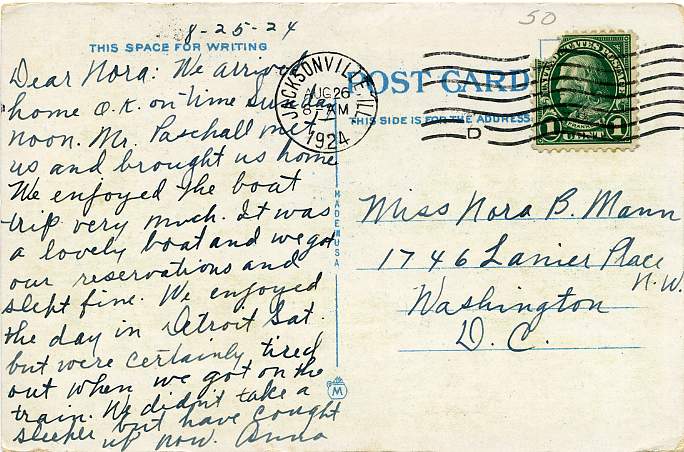 8-25-24
THIS SPACE FOR WRITING
Dear Nora: We arrived
home O.K. on time Sunday
noon. Mr. Paschall met
us and brought us home
We enjoyed the boat
trip very much. It was
a lovely boat and we got
our reservations and
slept fine. We enjoyed
the day in Detroit Sat.
but were certainly tired
out when we got on the
train. We didn't take a
sleeper but have caught
up now. Anna
50
POST CARD
THIS SIDE IS FOR THE ADDRESS
JACKSONVILLE, ILL.
AUG 26
AM
1924
D
UNITED STATES POSTAGE
FRANKLIN
1 CENT 1
MADE IN USA
M
Miss Nora B. Mann
1746 Lanier Place
N.W.
Washington
D.C.